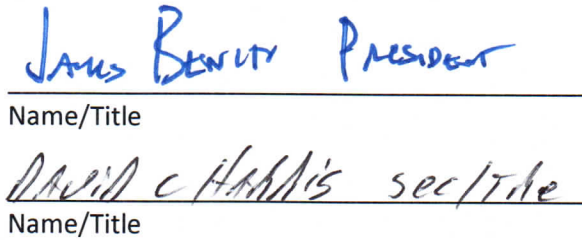 James Bewley President
Name/Title
DAVID C HARRIS sec/Tre
Name/Title